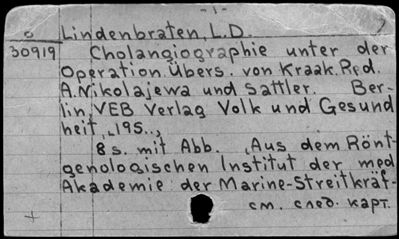 - 1 -
Lindenbraten, L.D.
30919 Cholangiographie unter der
Operation. Übers. von Kraak. Red.
A. Nikolajewa und Sattler. Ber-
lin, VEB Verlag Volk und Gesund
heit, 195..,
8 s. mit Abb. (Aus dem Rönt-
genologischen Institut der med
Akademie der Marine-Streitkräf-
см. след. карт.